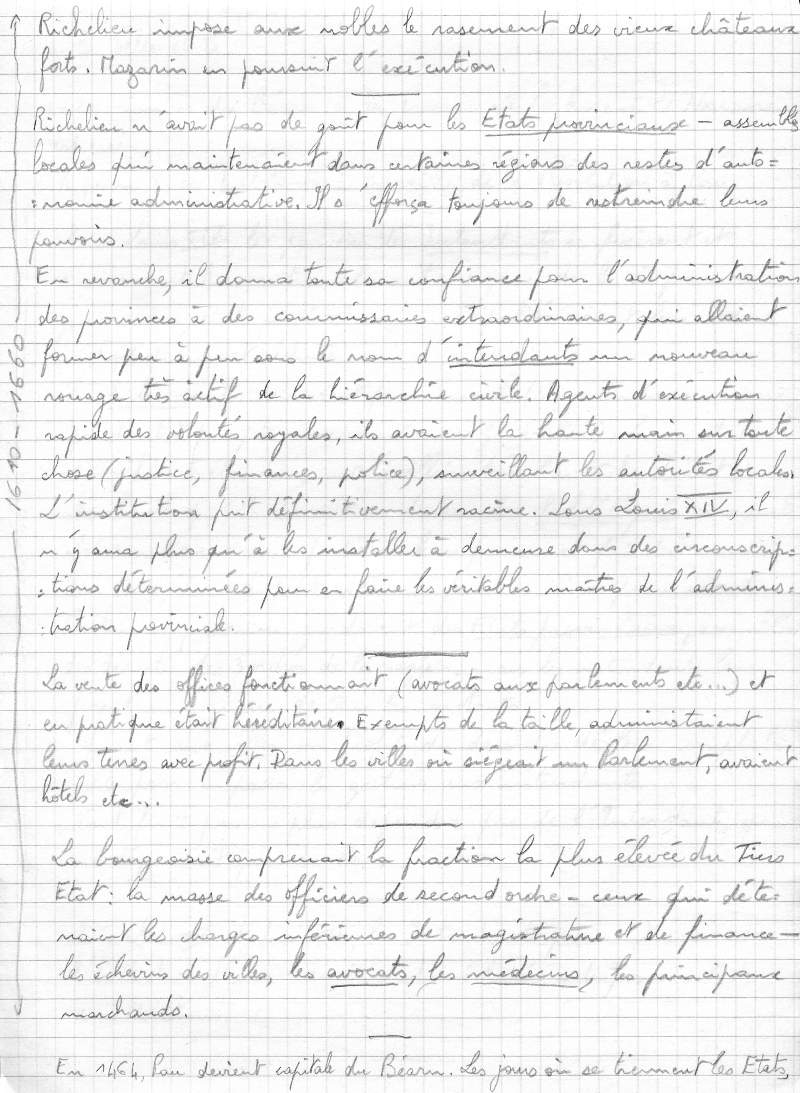 Richelieu impose aux nobles le rasement des vieux châteaux
forts. Mazarin en poursuit l'exécution.
Richelieu n'avait pas de goût pour les Etats provinciaux - assemblées
locales qui maintenaient dans certaines régions des restes d'auto=
=nomie administrative. Il s'efforça toujours de restreindre leurs
pouvoirs.
En revanche, il donna toute sa confiance pour l'administration
des provinces à des commissaires extraordinaires, qui allaient
former peu à peu sous le nom d'intendants un nouveau
rouage très actif de la hiérarchie civile. Agents d'exécution
rapide des volontés royales, ils avaient la haute main sur toute
chose (justice, finances, police), surveillant les autorités locales.
L'institution prit définitivement racine. Sous Louis XIV, il
n'y aura plus qu'à les installer à demeure dans des circonscrip=
=tions déterminées pour en faire les véritables maîtres de l'adminis=
=tration provinciale.
La vente des offices fonctionnait (avocats aux parlements etc...) et
en pratique était héréditaire. Exempts de la taille, administaient
leurs terres avec profit. Dans les villes où siégeait un Parlement, avaient
hôtels etc...
La bourgeoisie comprenait la fraction la plus élevée du Tiers
Etat : la masse des officiers de second ordre - ceux qui déte=
naient les charges inférieures de magistrature et de finance -
les échevins des villes, les avocats, les médecins, les principaux
marchands.
En 1464, Pau devient capitale du Béarn. Les jours où se tiennent les Etats,
1610 - 1660